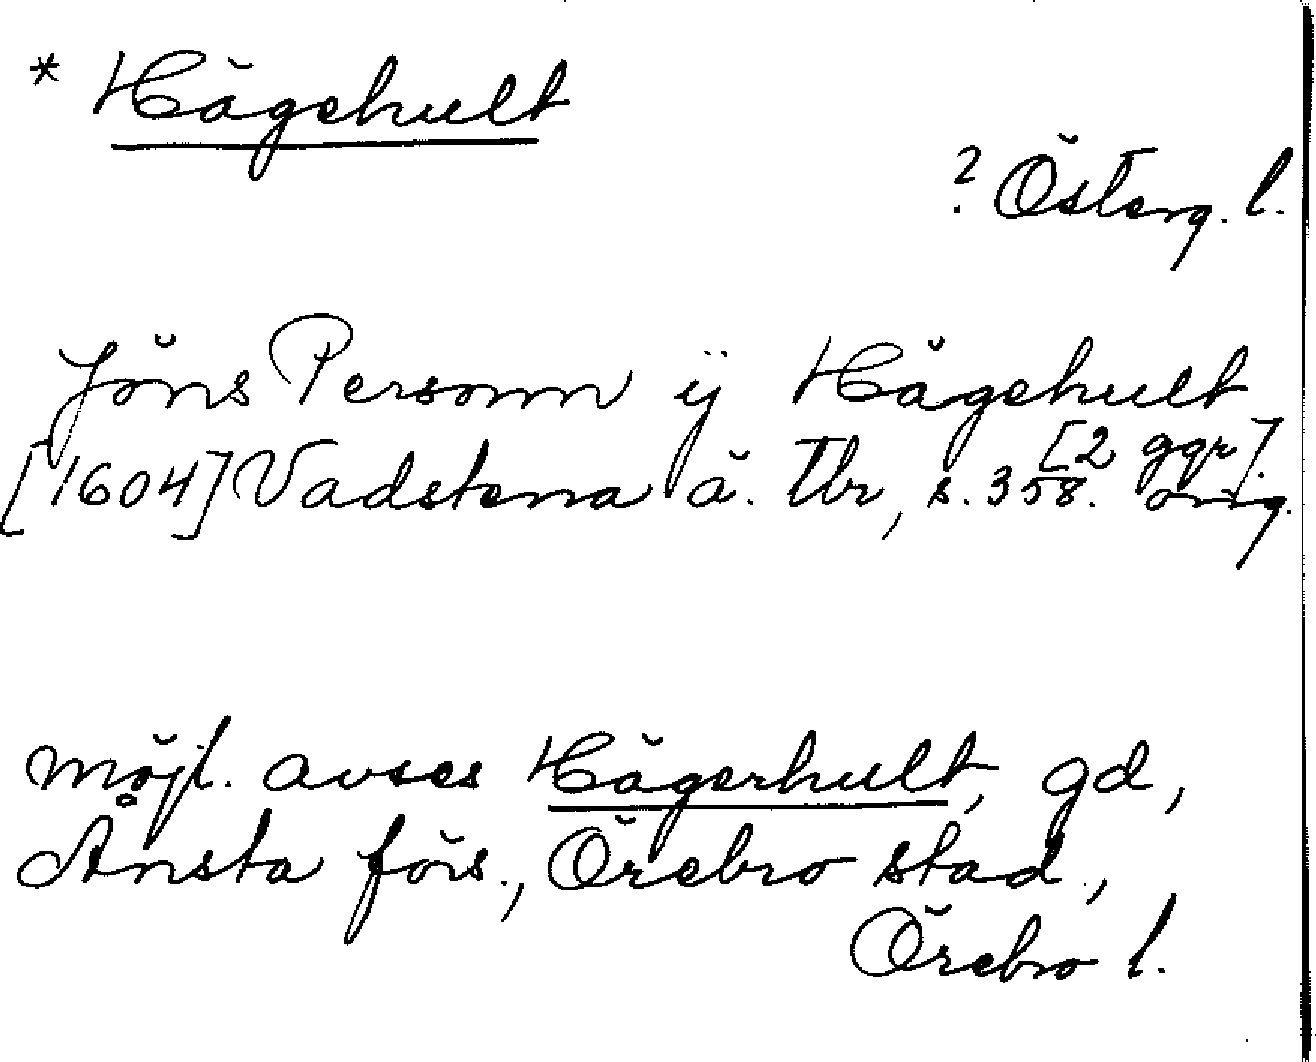 * Hägehult
? Österg. l.
Jöns Personn ij Hägehult
[2 ggr].
[1604] Vadstena ä. Tbr, s. 358. orig.
möjl. avses Hägerhult, gd,
Ånsta förs., Örebro stad,
Örebro l.